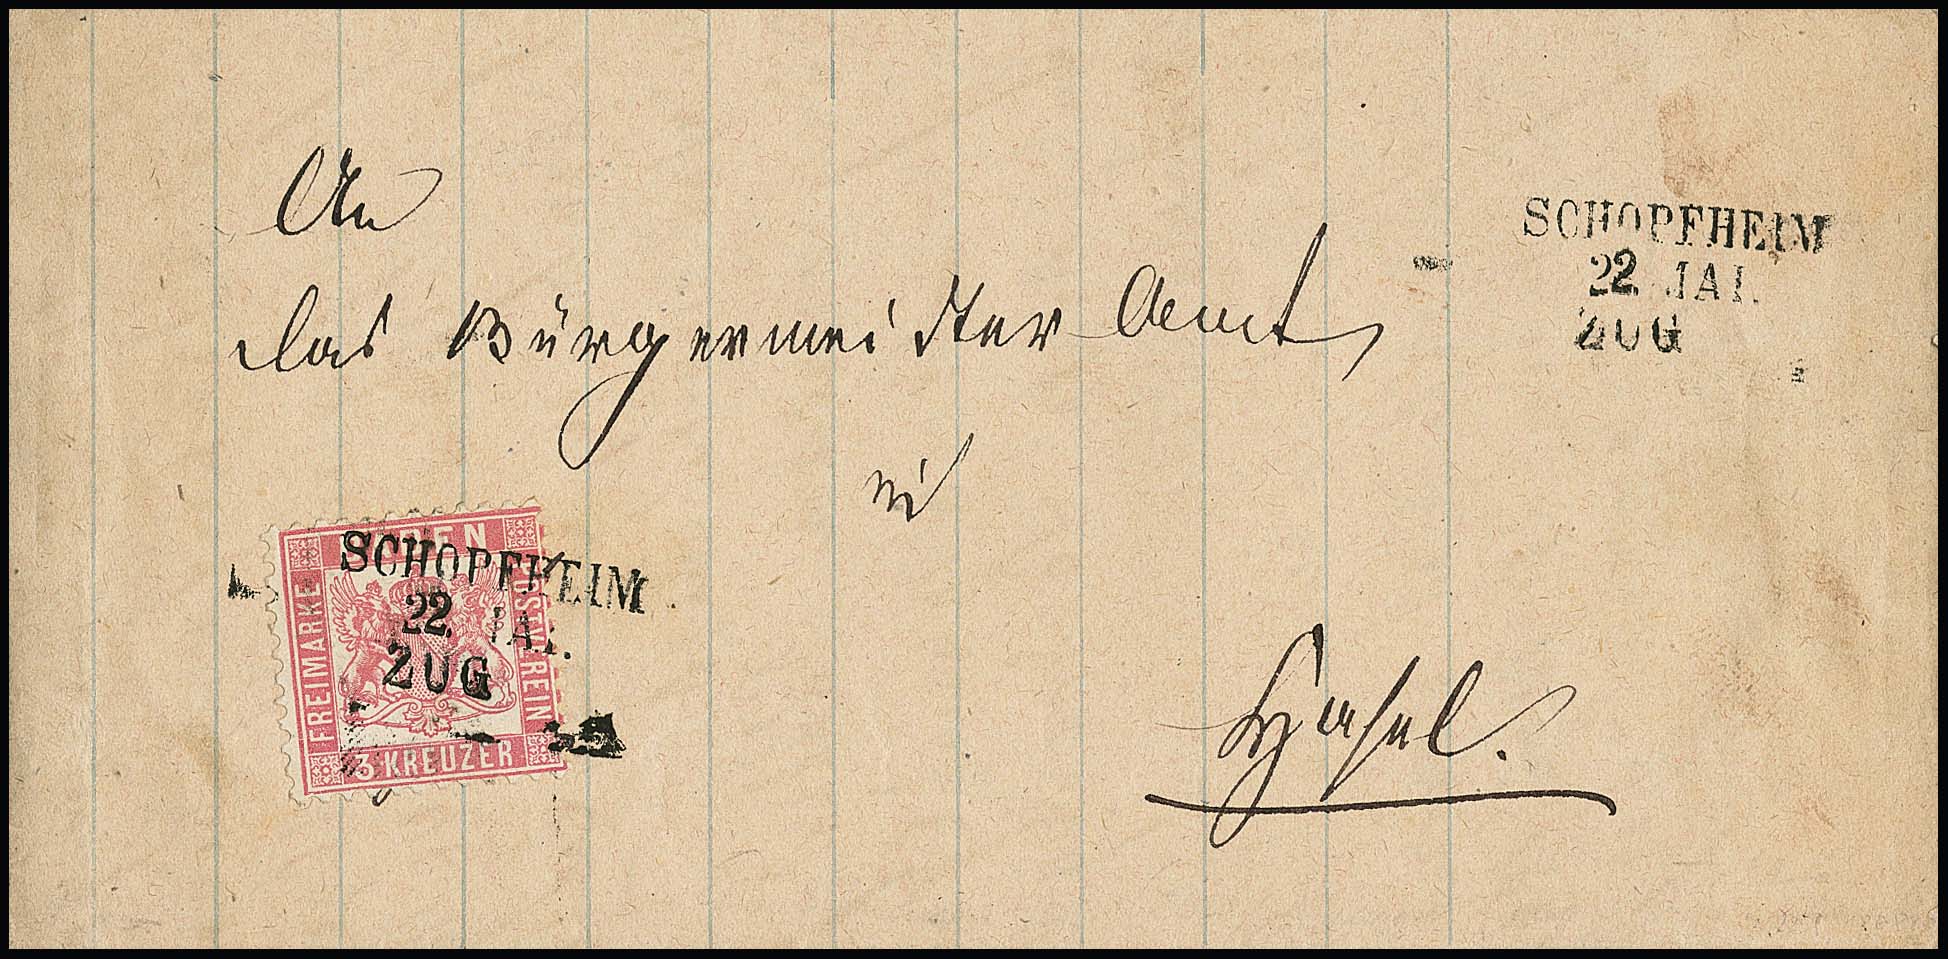 An
das Bürgermeister Amt
in
Hasel.
SCHOPFHEIM
22. MAI.
ZUG
BADEN
FREIMARKE
POSTVEREIN
3 KREUZER
SCHOPFHEIM
22. MAI.
ZUG